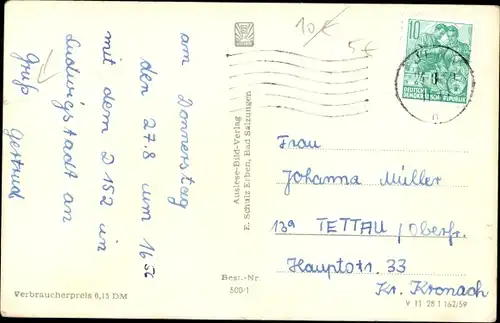 am Donnerstag
den 27.8 um 16⁵²
mit dem D 152 in
Ludwigstadt an
Gruß Gertrud
10 €
5 €
10
DEUTSCHE
DEMOKRATISCHE REPUBLIK
Auslese-Bild-Verlag
E. Schulz Erben, Bad Salzungen
Frau
Johanna Müller
13a TETTAU/Oberfr.
Hauptstr. 33
Kr. Kronach
Verbraucherpreis 0,15 DM
Best.-Nr.
500/1
V 11 28 1 162/59